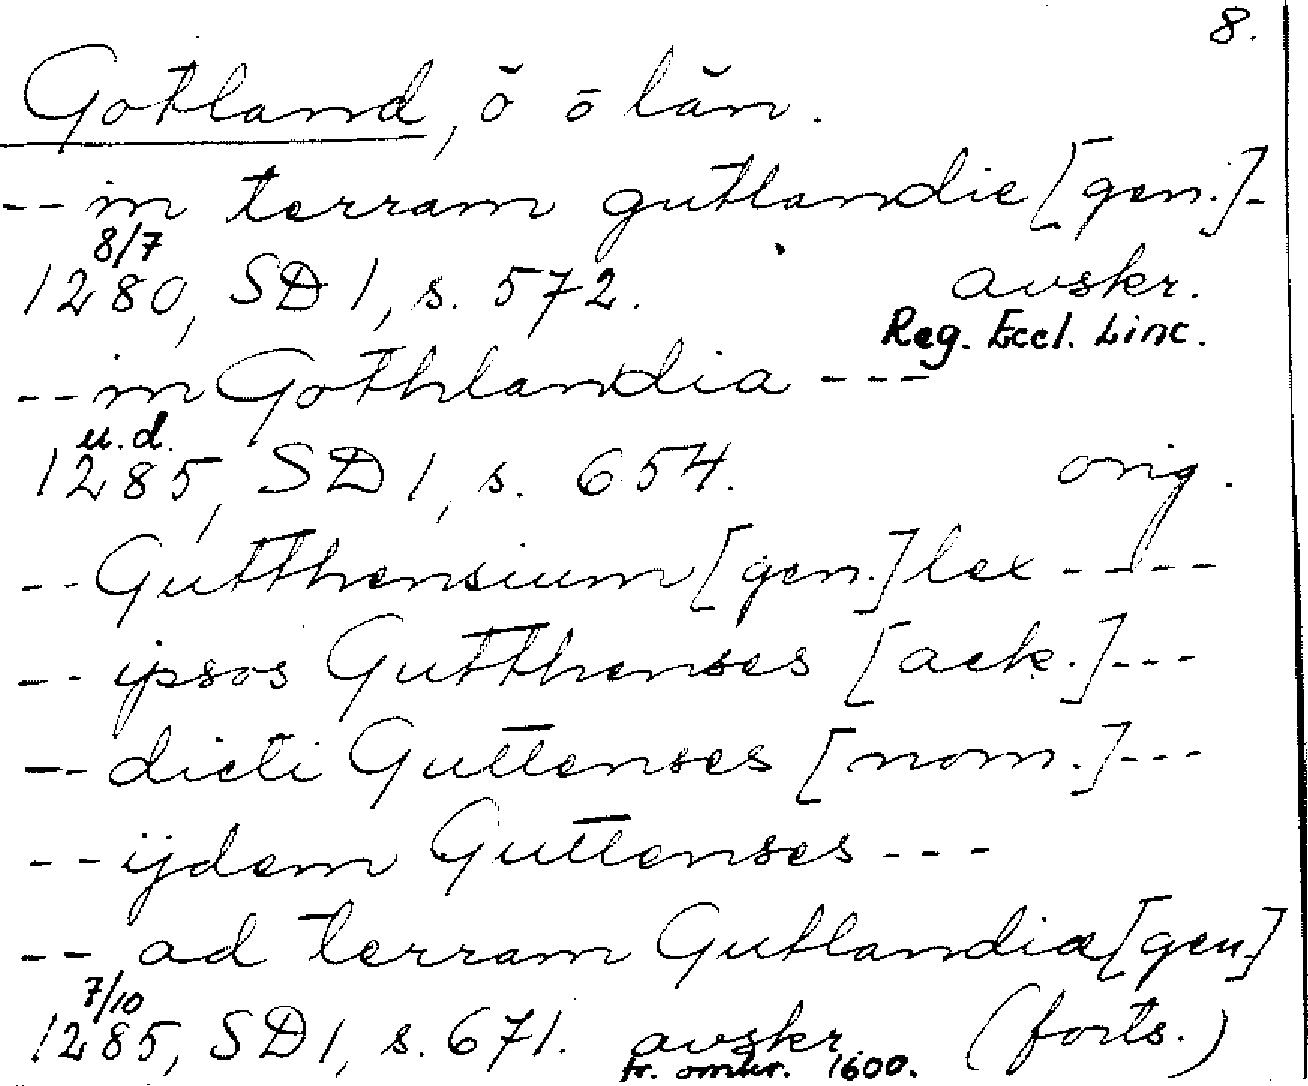 8.
Gotland, ö o län.
-- in terram gutlandie [gen.] -
8/7
1280, SD 1, s. 572. avskr.
Reg. Eccl. Linc.
-- in Gothlandia ---
u.d.
1285, SD 1, s. 654. orig.
-- Gutthensium [gen.] lex ----
-- ipsos Gutthenses [ack.] ---
-- dicti Guttenses [nom.] ---
-- ijdem Guttenses ---
-- ad terram Gutlandiæ [gen.]
7/10
1285, SD 1, s. 671. avskr. (forts.)
fr. omkr. 1600.